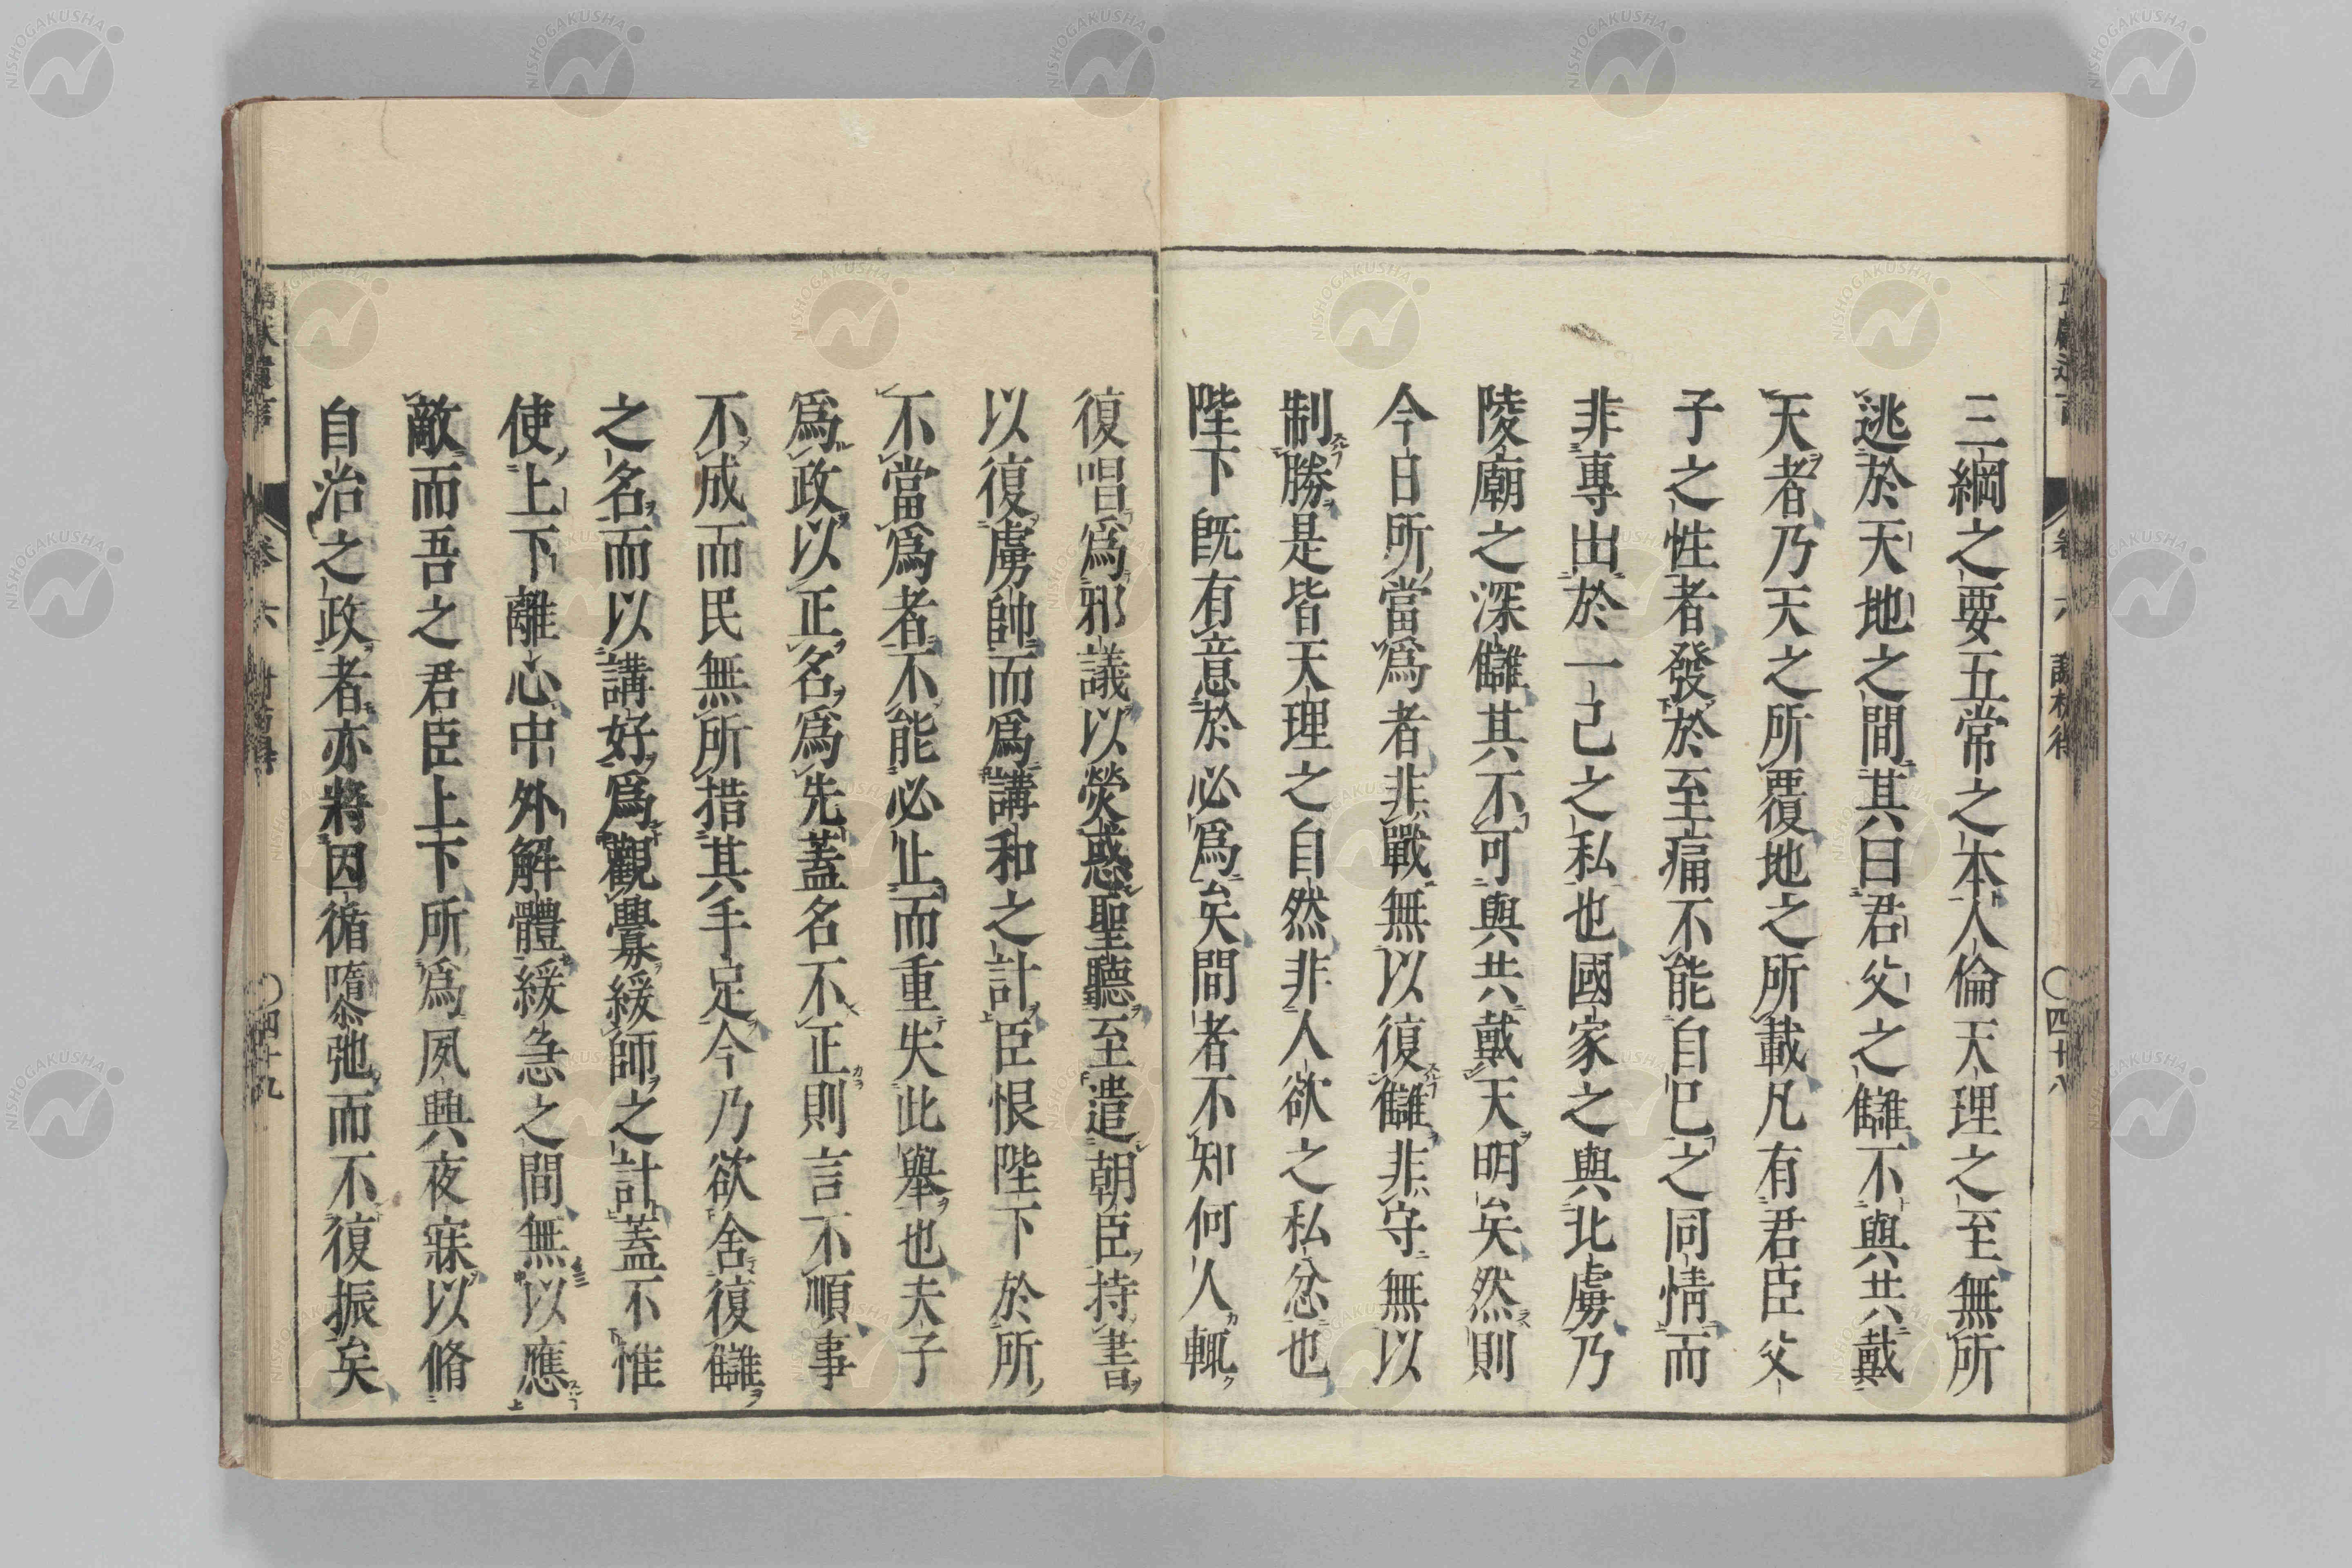 三綱之要五常之本人倫天理之至無所
逃於天地之間其曰君父之讎不與共戴
天者乃天之所覆地之所載凡有君臣父
子之性者發於至痛不能自已之同情而
非專出於一己之私也國家之與北虜乃
陵廟之深讎其不可與共戴天明矣然則
今日所當爲者非戰無以復讎非守無以
制勝是皆天理之自然非人欲之私忿也
陛下既有意於必爲矣間者不知何人輒
復唱爲邪議以熒惑聖聽至遣朝臣持書
以復虜帥而爲講和之計臣恨陛下於所
不當爲者不能必止而重失此舉也夫子
爲政以正名爲先蓋名不正則言不順事
不成而民無所措其手足今乃欲舍復讎
之名而以講好爲觀釁緩師之計蓋不惟
使上下離心中外解體緩急之間無以應
敵而吾之君臣上下所爲夙興夜寐以脩
自治之政者亦將因循隳弛而不復振矣
卷六
四十九
NISHOGAKUSHA